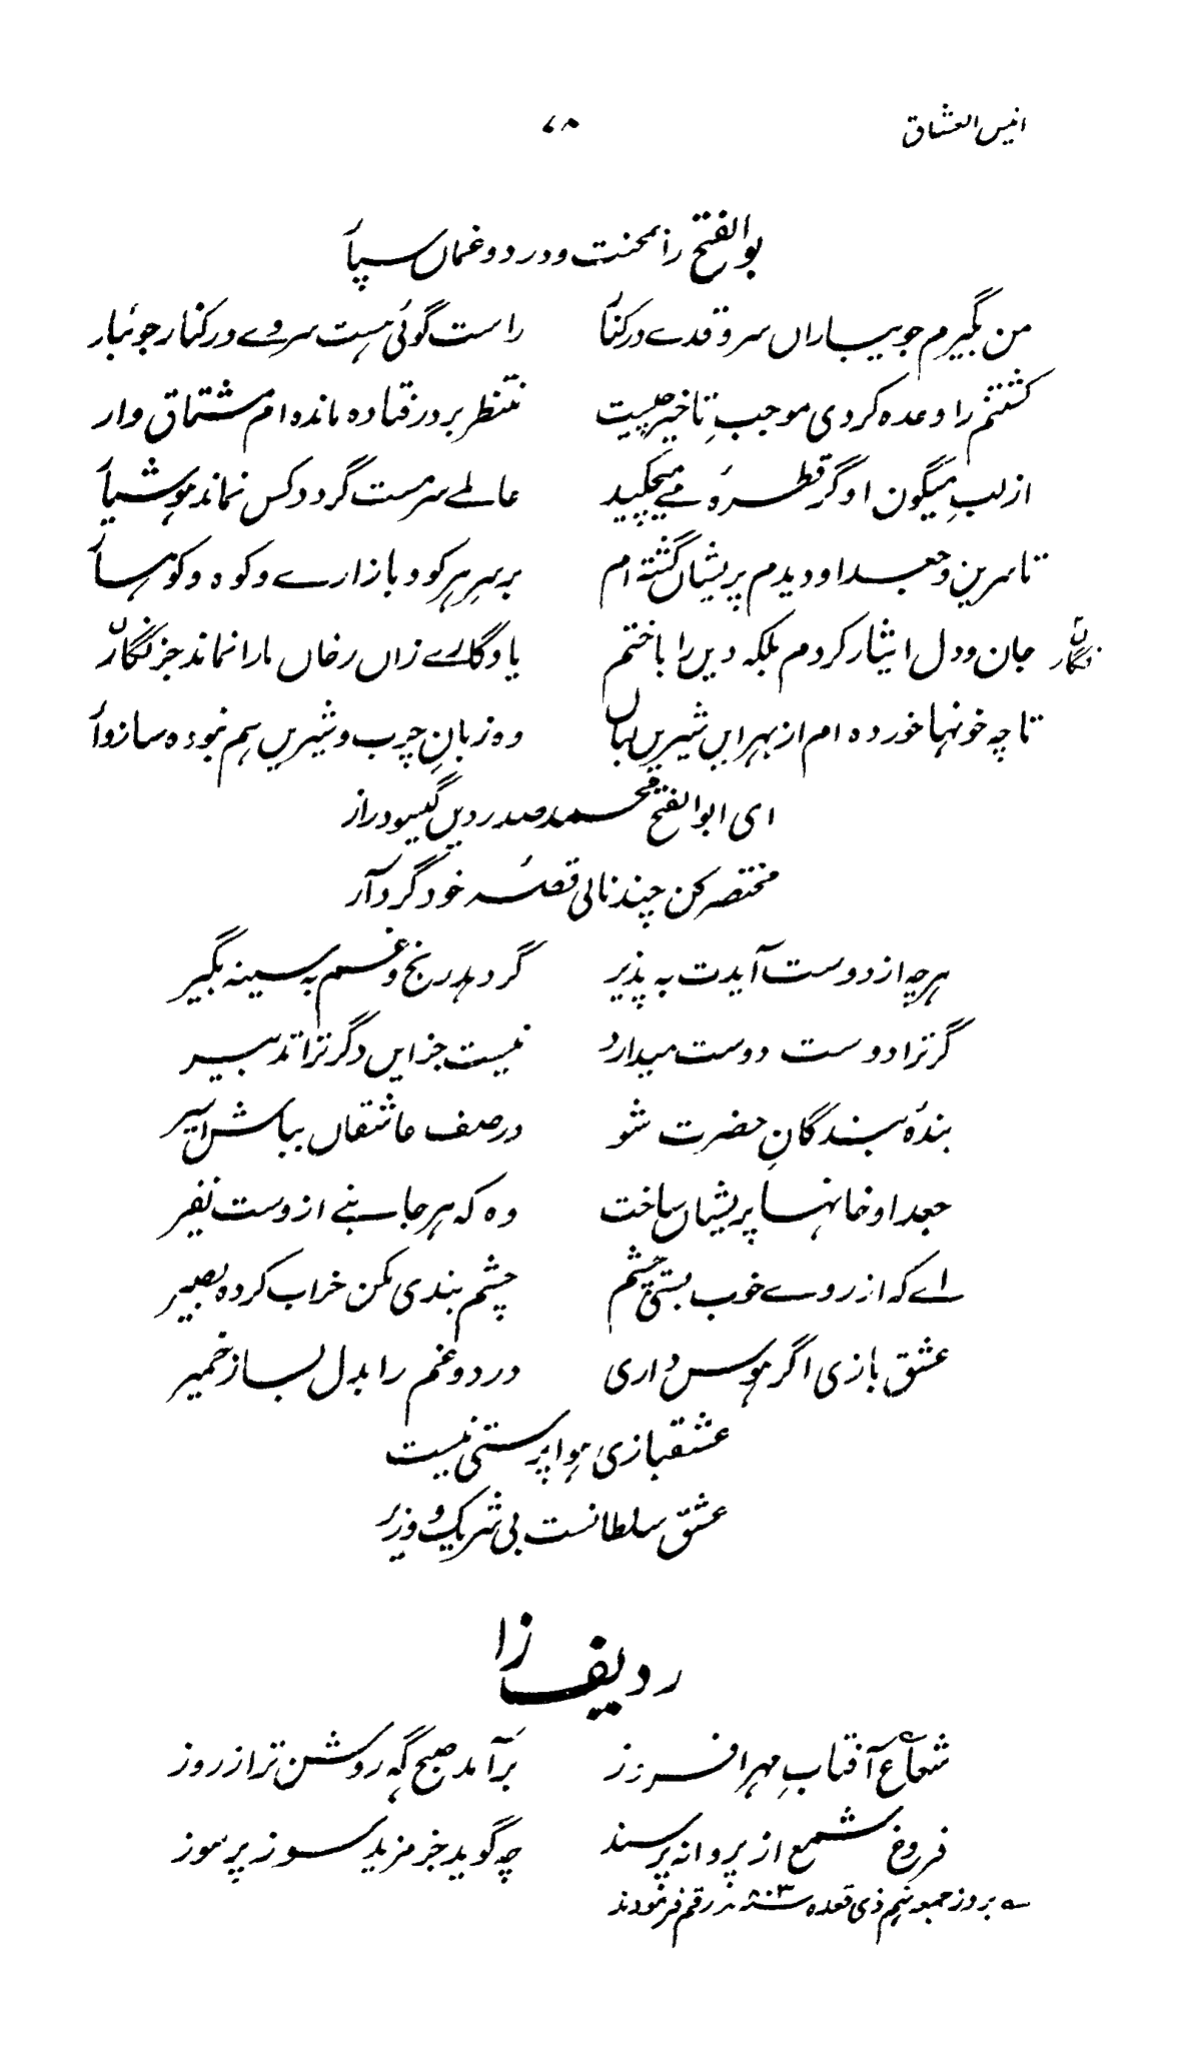 انیس العشاق ۷۸
بوالفتح را بمحنت و درد و غماں سپار
من بگیرم جو یباراں سرو قدے در کنار راست گوئی ہست سروے در کنار جوئبار
کشتنم را وعدہ کردی موجبِ تاخیر چیست منتظر بر در فتادہ ماندہ ام مشتاق وار
از لبِ میگون او گر قطرۂ مے میچکید عالمے سرمست گردد کس نماند ہوشیار
تا سرین و جعد او دیدم پریشاں گشتہ ام برسرِ ہر کو و بازارے و کوہ و کوہسار
جان و دل ایثار کردم بلکہ دیں را باختم یادگارے زاں رخاں مارا نماند جز نگار
تا چہ خونہا خوردہ ام از بہر ایں شیریں لباں وہ زبانِ چرب و شیریں ہم نبودہ سازوار
ای ابوالفتح محمد صدر دیں گیسو دراز
مختصر کن چند نالی قصۂ خود گرد آر
ہرچہ از دوست آیدت بہ پذیر گر دہد رنج و غم بہ سینہ بگیر
گر ترا دوست دوست میدارد نیست جز ایں دگر ترا تدبیر
بندۂ بندگانِ حضرت شو در صف عاشقاں بباش اسیر
جعد او خانہا پریشاں ساخت وہ کہ ہر جا بنے از وست نفیر
اے کہ از روے خوب بستی چشم چشم بندی مکن خراب کردہ بصیر
عشق بازی اگر ہوس داری درد و غم را بدل بساز خمیر
عشقبازی ہوا پرستی نیست
عشق سلطانست بی شریک و وزیر
ردیف زا
شعاعِ آفتابِ مہر افروز برآمد صبح گہ روشن تر از روز
فروغ شمع از پروانہ پرسند چہ گوید جز مزید سوز پر سوز
بروز جمعہ نہم ذی قعدہ ۸۰۳ رقم فرمودند